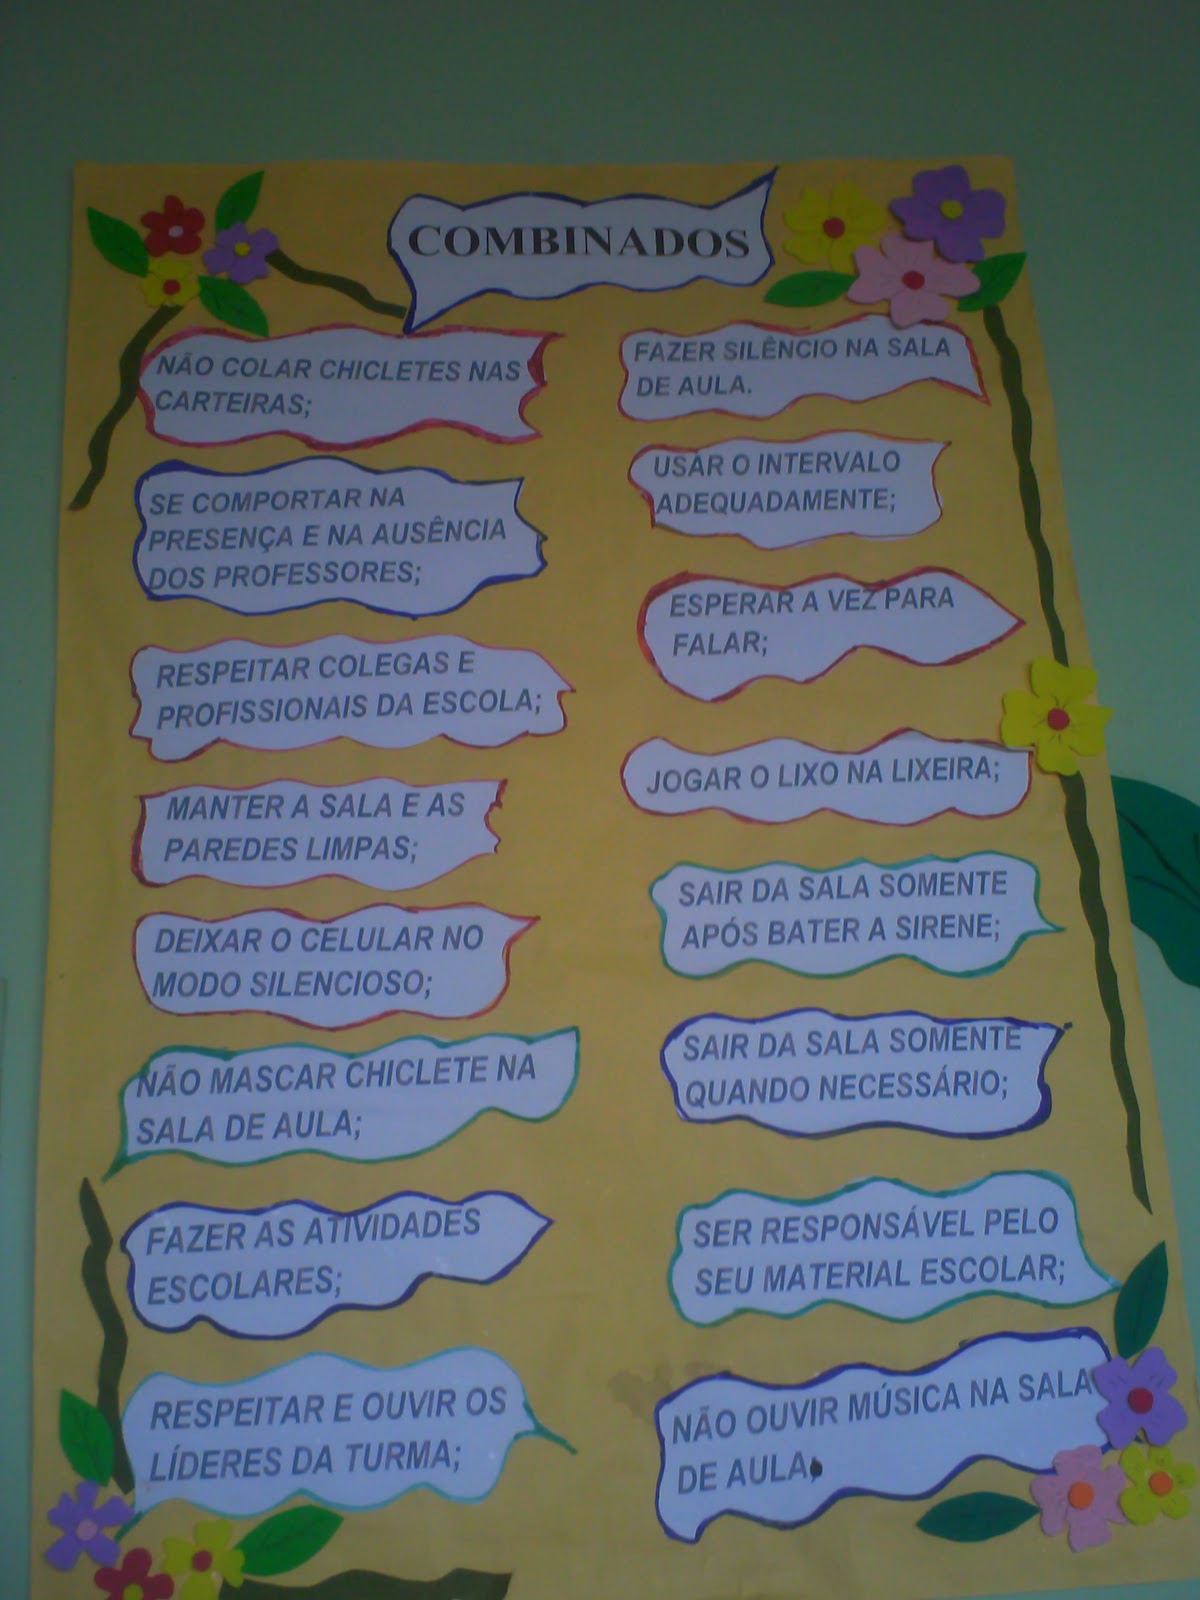 COMBINADOS
NÃO COLAR CHICLETES NAS
CARTEIRAS;
SE COMPORTAR NA
PRESENÇA E NA AUSÊNCIA
DOS PROFESSORES;
RESPEITAR COLEGAS E
PROFISSIONAIS DA ESCOLA;
MANTER A SALA E AS
PAREDES LIMPAS;
DEIXAR O CELULAR NO
MODO SILENCIOSO;
NÃO MASCAR CHICLETE NA
SALA DE AULA;
FAZER AS ATIVIDADES
ESCOLARES;
RESPEITAR E OUVIR OS
LÍDERES DA TURMA;
FAZER SILÊNCIO NA SALA
DE AULA.
USAR O INTERVALO
ADEQUADAMENTE;
ESPERAR A VEZ PARA
FALAR;
JOGAR O LIXO NA LIXEIRA;
SAIR DA SALA SOMENTE
APÓS BATER A SIRENE;
SAIR DA SALA SOMENTE
QUANDO NECESSÁRIO;
SER RESPONSÁVEL PELO
SEU MATERIAL ESCOLAR;
NÃO OUVIR MÚSICA NA SALA
DE AULA;